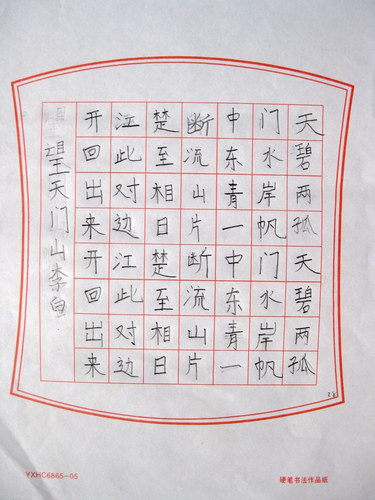 天门中断楚江开
碧水东流至此回
两岸青山相对出
孤帆一片日边来
天门中断楚江开
碧水东流至此回
两岸青山相对出
孤帆一片日边来
望天门山李白
YXHC6866-05
硬笔书法作品纸